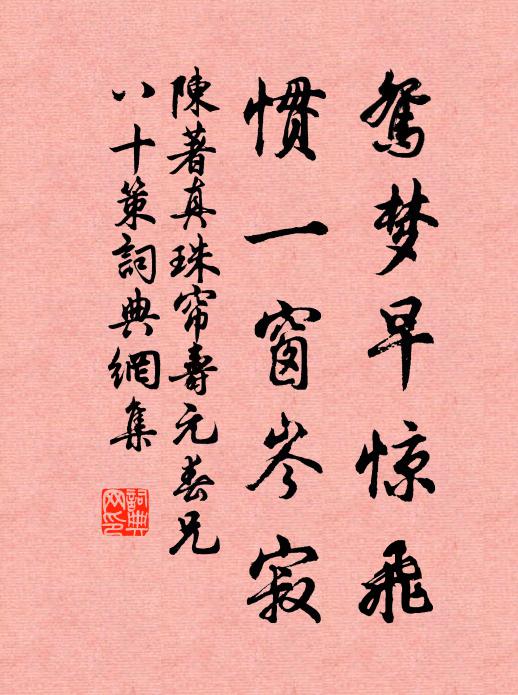 鴛梦早惊飛
慣一窗岑寂
陳著真珠帘壽元春兄
八十策詞典網集
詞典网印